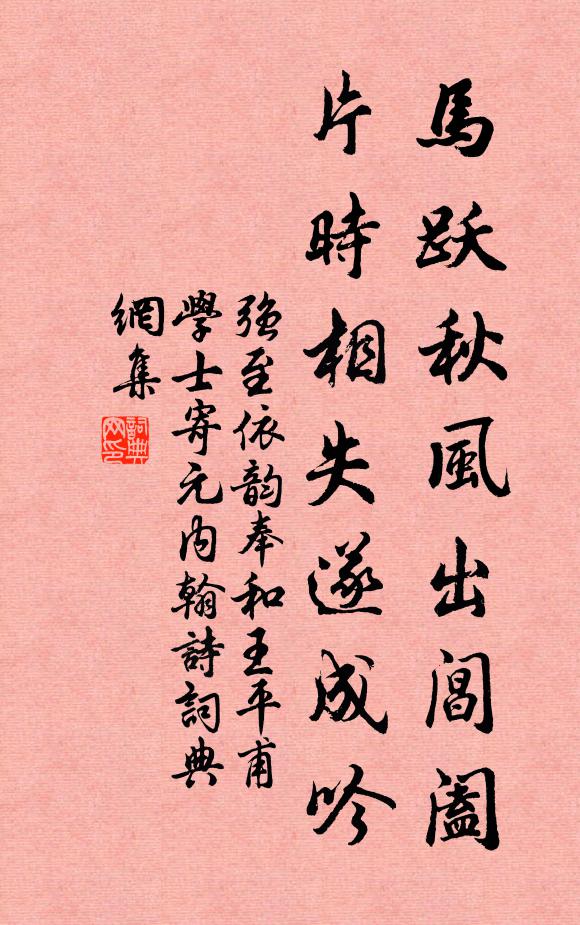 馬跃秋風出閶闔
片時相失遂成吟
強至依韵奉和王平甫
學士寄元内翰詩詞典
網集
詞典
网印